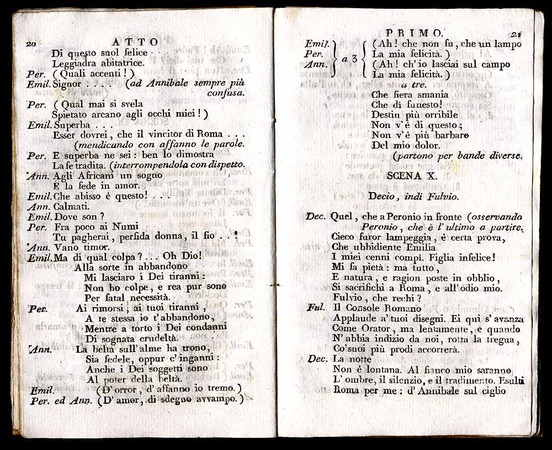 20 ATTO
Di questo suol felice
Leggiadra abitatrice.
Per. (Quali accenti!)
Emil. Signor . . . . (ad Annibale sempre più
confusa.
Per. (Qual mai si svela
Spietato arcano agli occhi miei!)
Emil. Superba . . .
Esser dovrei, che il vincitor di Roma . . .
(mendicando con affanno le parole.
Per. E superba ne sei: ben lo dimostra
La fe tradita. (interrompendola con dispetto.
Ann. Agli Africani un sogno
È la fede in amor.
Emil. Che abisso è questo! . . .
Ann. Calmati.
Emil. Dove son?
Per. Fra poco ai Numi
Tu pagherai, perfida donna, il fio . . . !
Ann. Vano timor.
Emil. Ma di qual colpa? . . . Oh Dio!
Alla sorte in abbandono
Mi lasciaro i Dei tiranni:
Non ho colpe, e rea pur sono
Per fatal necessità.
Per. Ai rimorsi, ai tuoi tiranni
A te stessa io t'abbandono,
Mentre a torto i Dei condanni
Di sognata crudeltà.
Ann. La beltà sull'alme ha trono,
Sia fedele, oppur c'inganni:
Anche i Dei soggetti sono
Al poter della beltà.
Emil. (D'orror, d'affanno io tremo.)
Per. ed Ann. (D'amor, di sdegno avvampo.)
PRIMO. 21
Emil. (Ah! che non fu, che un lampo
Per. a 3 La mia felicità.)
Ann. (Ah! ch'io lasciai sul campo
La mia felicità.)
a tre.
Che fiera smania
Che dì funesto!
Destin più orribile
Non v'è di questo;
Non v'è più barbaro
Del mio dolor.
(partono per bande diverse.
SCENA X.
Decio, indi Fulvio.
Dec. Quel, che a Peronio in fronte (osservando
Peronio, che è l'ultimo a partire,
Cieco furor lampeggia, è certa prova,
Che ubbidiente Emilia
I miei cenni compì. Figlia infelice!
Mi fa pietà: ma tutto,
E natura, e ragion poste in obblio,
Si sacrifichi a Roma, e all'odio mio.
Fulvio, che rechi?
Ful. Il Console Romano
Applaude a'tuoi disegni. Ei qui s'avanza
Come Orator, ma lentamente, e quando
N'abbia indizio da noi, rotta la tregua,
Co'suoi più prodi accorrerà.
Dec. La notte
Non è lontana. Al fianco mio saranno
L'ombre, il silenzio, e il tradimento. Esulti
Roma per me: d'Annibale sul ciglio